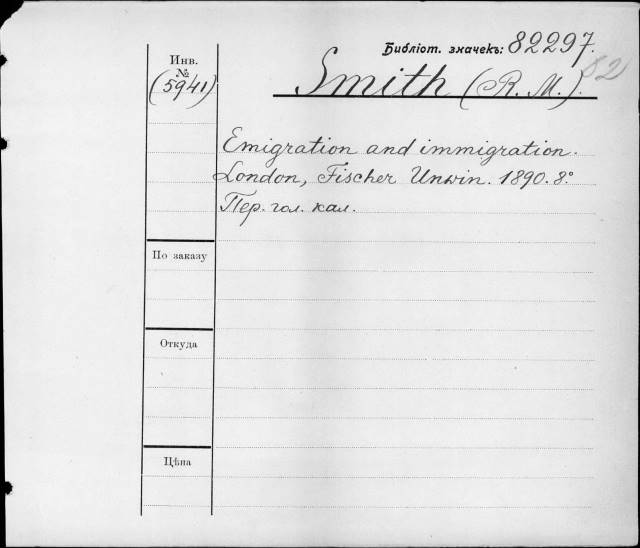 Библіот. значекъ: 82297.
82
Инв.
№
(5941)
Smith (R. M.).
Emigration and immigration.
London, Fischer Unwin. 1890. 8°
Пер. гол. кал.
По заказу
Откуда
Цѣна